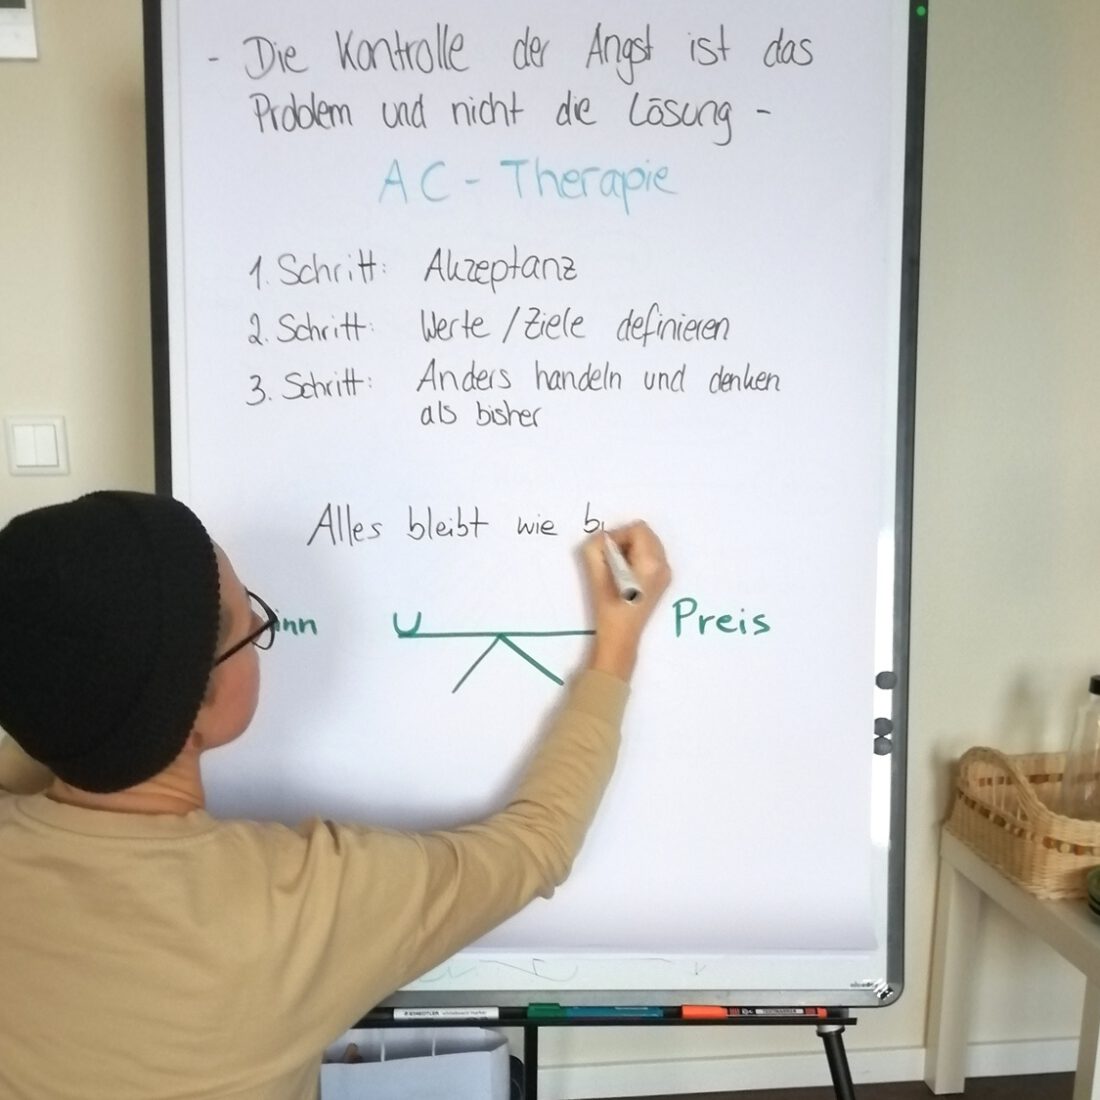 - Die Kontrolle der Angst ist das
Problem und nicht die Lösung -
AC - Therapie
1. Schritt: Akzeptanz
2. Schritt: Werte / Ziele definieren
3. Schritt: Anders handeln und denken
als bisher
Alles bleibt wie b
inn
Preis
STAEDTLER